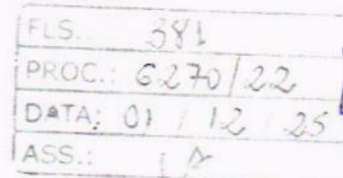 FLS.: 381
PROC.: 6270/22
DATA: 01 / 12 / 25
ASS.: